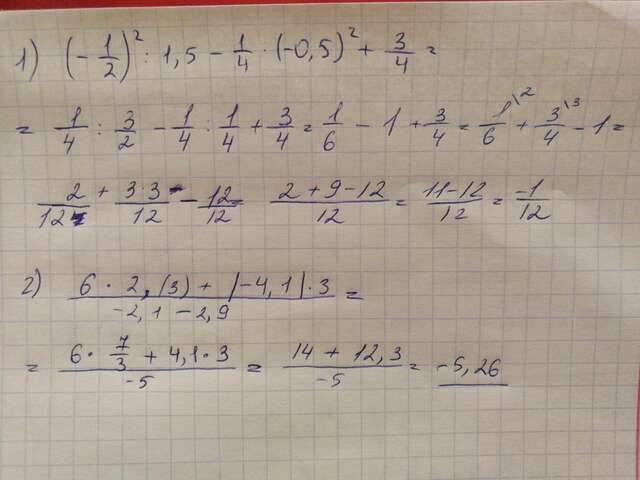 1) (-1/2)² : 1,5 - 1/4 · (-0,5)² + 3/4 =
= 1/4 : 3/2 - 1/4 : 1/4 + 3/4 = 1/6 - 1 + 3/4 = 1\2/6 + 3\3/4 - 1 =
2/12 + 3·3/12 - 12/12 = 2+9-12/12 = 11-12/12 = -1/12
2) 6 · 2,(3) + |-4,1| · 3 / -2,1 - 2,9 =
= 6 · 7/3 + 4,1 · 3 / -5 = 14 + 12,3 / -5 = -5,26